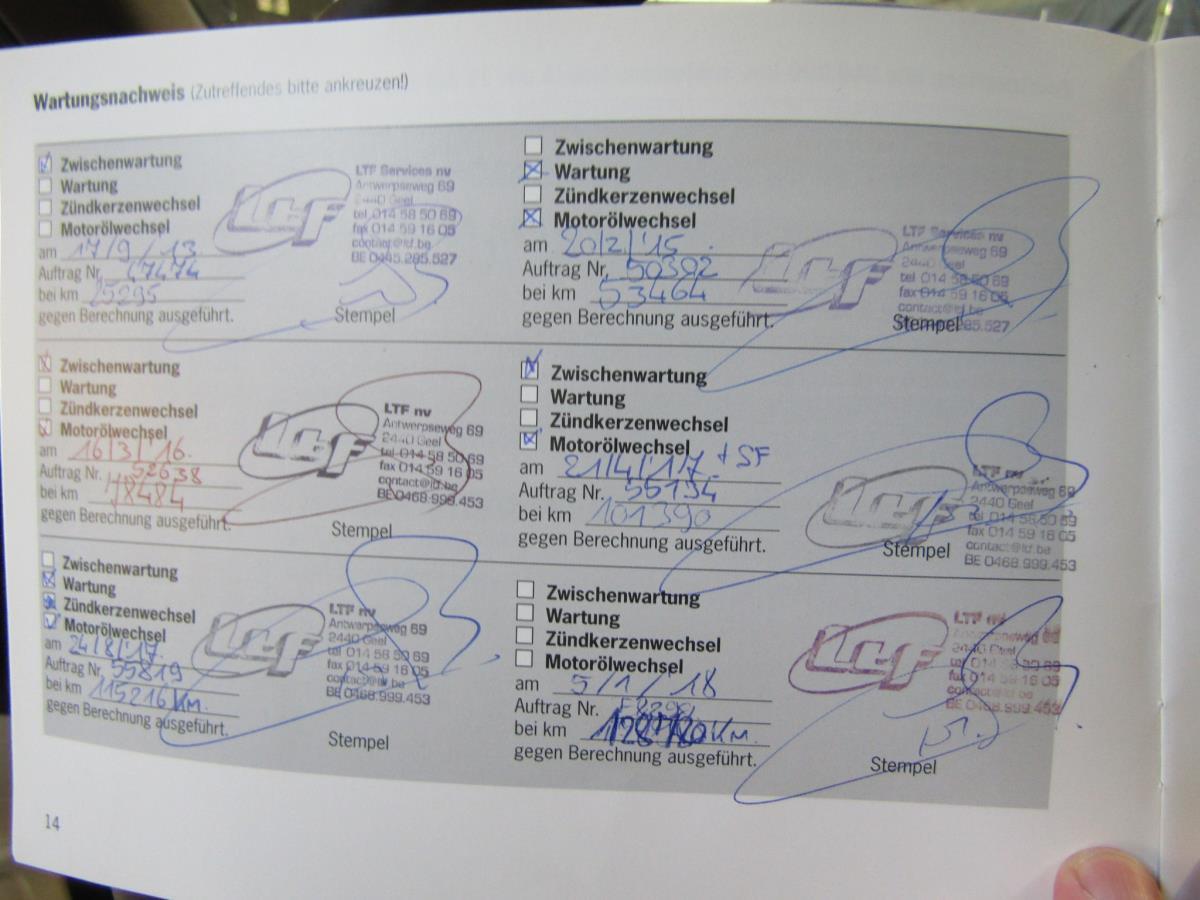 Wartungsnachweis (Zutreffendes bitte ankreuzen!)
Zwischenwartung
Wartung
Zündkerzenwechsel
Motorölwechsel
am 17/9/13
Auftrag Nr. 47474
bei km 25295
gegen Berechnung ausgeführt.
Stempel
LTF Services nv
Antwerpseweg 69
2440 Geel
tel 014 58 50 69
fax 014 59 16 05
contact@ltf.be
BE 0445.285.527
Zwischenwartung
Wartung
Zündkerzenwechsel
Motorölwechsel
am 20/2/'15
Auftrag Nr. 50392
bei km 53464
gegen Berechnung ausgeführt.
Stempel
LTF Services nv
Antwerpseweg 69
2440 Geel
tel 014 58 50 69
fax 014 59 16 05
contact@ltf.be
Zwischenwartung
Wartung
Zündkerzenwechsel
Motorölwechsel
am 16/3/16.
Auftrag Nr. 52638
bei km 78484
gegen Berechnung ausgeführt.
Stempel
LTF nv
Antwerpseweg 69
2440 Geel
tel 014 58 50 69
fax 014 59 16 05
contact@ltf.be
BE 0468.999.453
Zwischenwartung
Wartung
Zündkerzenwechsel
Motorölwechsel
am 21/4/'17 + SF
Auftrag Nr. 55134
bei km 101390
gegen Berechnung ausgeführt.
Stempel
LTF nv
Antwerpseweg 69
2440 Geel
tel 014 58 50 69
fax 014 59 16 05
contact@ltf.be
BE 0468.999.453
Zwischenwartung
Wartung
Zündkerzenwechsel
Motorölwechsel
am 24/8/17
Auftrag Nr. 55819
bei km 115216 Km.
gegen Berechnung ausgeführt.
Stempel
LTF nv
Antwerpseweg 69
2440 Geel
tel 014 58 50 69
fax 014 59 16 05
contact@ltf.be
BE 0468.999.453
Zwischenwartung
Wartung
Zündkerzenwechsel
Motorölwechsel
am 5/1/18
Auftrag Nr.
bei km Km.
gegen Berechnung ausgeführt.
Stempel
LTF nv
Antwerpseweg 69
2440 Geel
tel 014 58 50 69
fax 014 59 16 05
contact@ltf.be
BE 0468.999.453
14